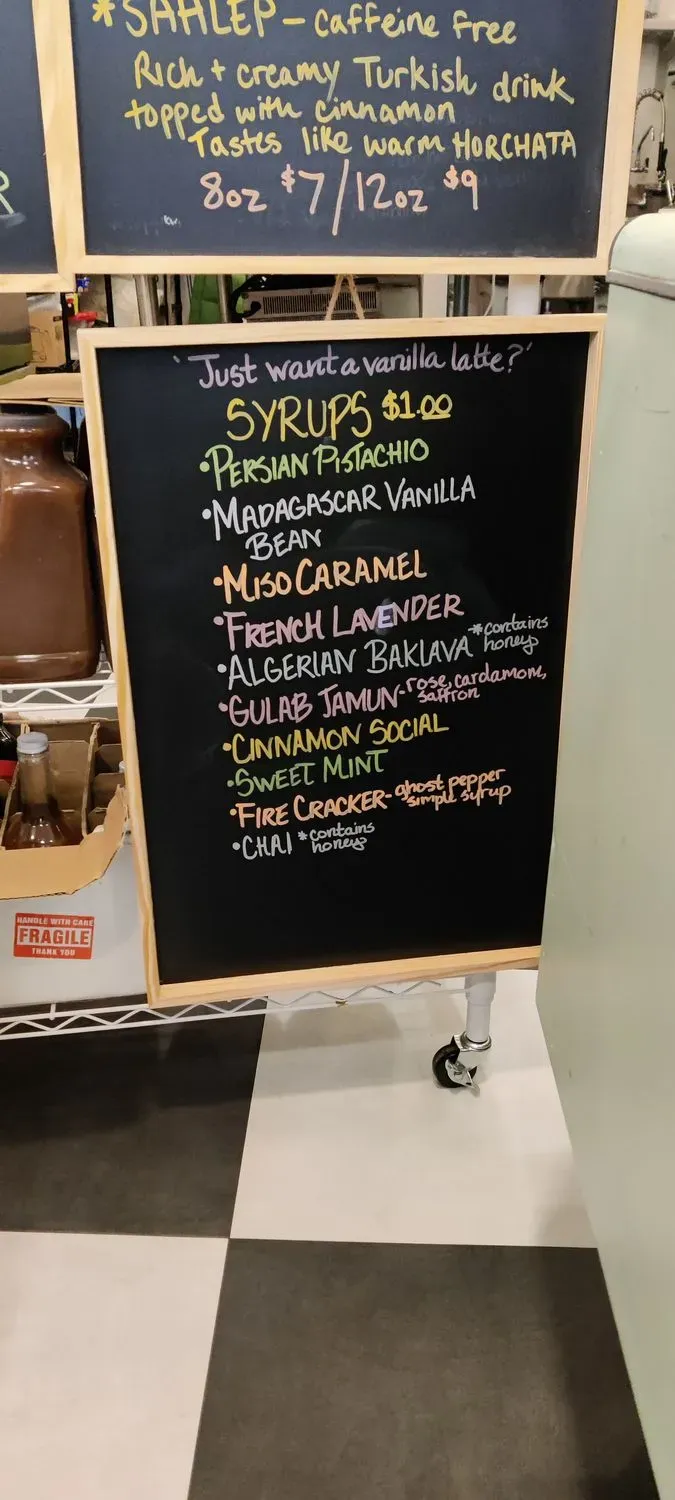 *SAHLEP - caffeine free
Rich + creamy Turkish drink
topped with cinnamon
Tastes like warm HORCHATA
8oz $7/12oz $9
R
"Just want a vanilla latte?"
SYRUPS $1.00
•PERSIAN PISTACHIO
•MADAGASCAR VANILLA
BEAN
•MISO CARAMEL
•FRENCH LAVENDER
•ALGERIAN BAKLAVA *contains
honey
•GULAB JAMUN-rose, cardamom,
saffron
•CINNAMON SOCIAL
•SWEET MINT
•FIRE CRACKER-ghost pepper
simple syrup
•CHAI *contains
honey
HANDLE WITH CARE
FRAGILE
THANK YOU